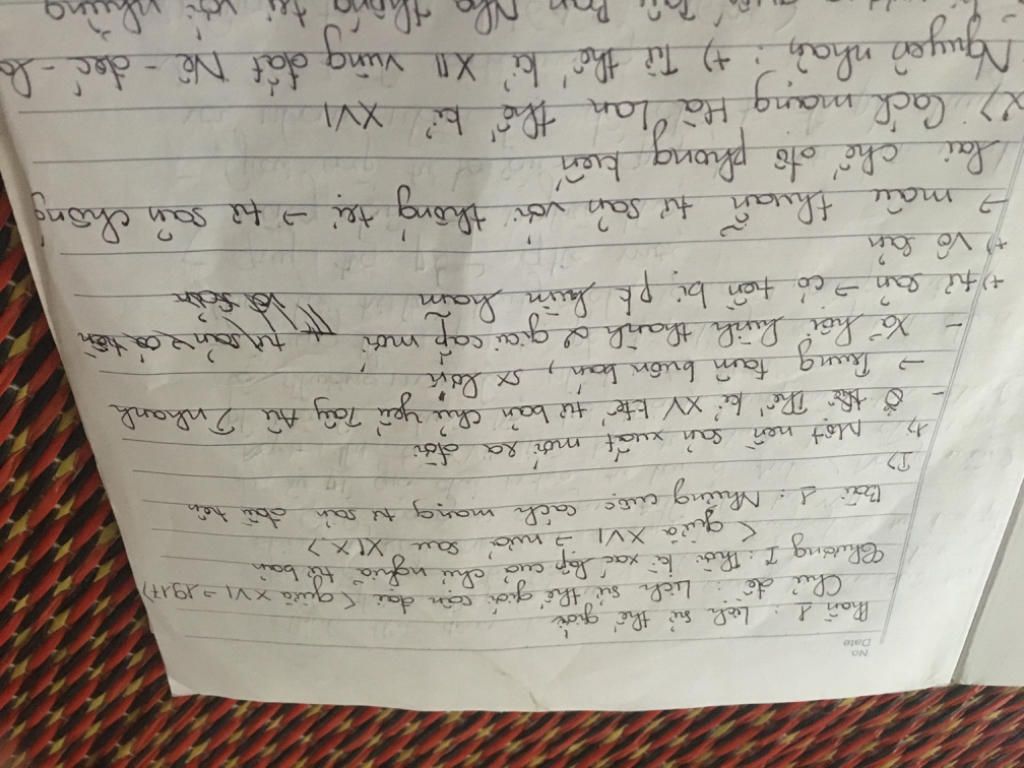 No
Date
Phần 1: Lịch sử thế giới
Chủ đề: Lịch sử thế giới cận đại (giữa XVI → 1917)
Chương I: Thời kì xác lập của chủ nghĩa tư bản
(giữa XVI → nửa sau XIX)
Bài 1: Những cuộc cách mạng tư sản đầu tiên
I)
1) Một nền sản xuất mới ra đời
- Thế kỉ XV ktế tư bản chủ yếu Tây Âu nhanh
→ Trung tâm buôn bán, sx lớn
- Xã hội hình thành 2 giai cấp mới tư sản có tiền
Vô sản
+) tư sản → có tiền bị pk kìm hãm
+) Vô sản
→ mâu thuẫn tư sản với thống trị → tư sản chống
lại chế độ phong kiến
2) Cách mạng Hà Lan thế kỉ XVI
Nguyên nhân: +) Từ thế kỉ XII vùng đất Nê-đéc-la
thống trị với những